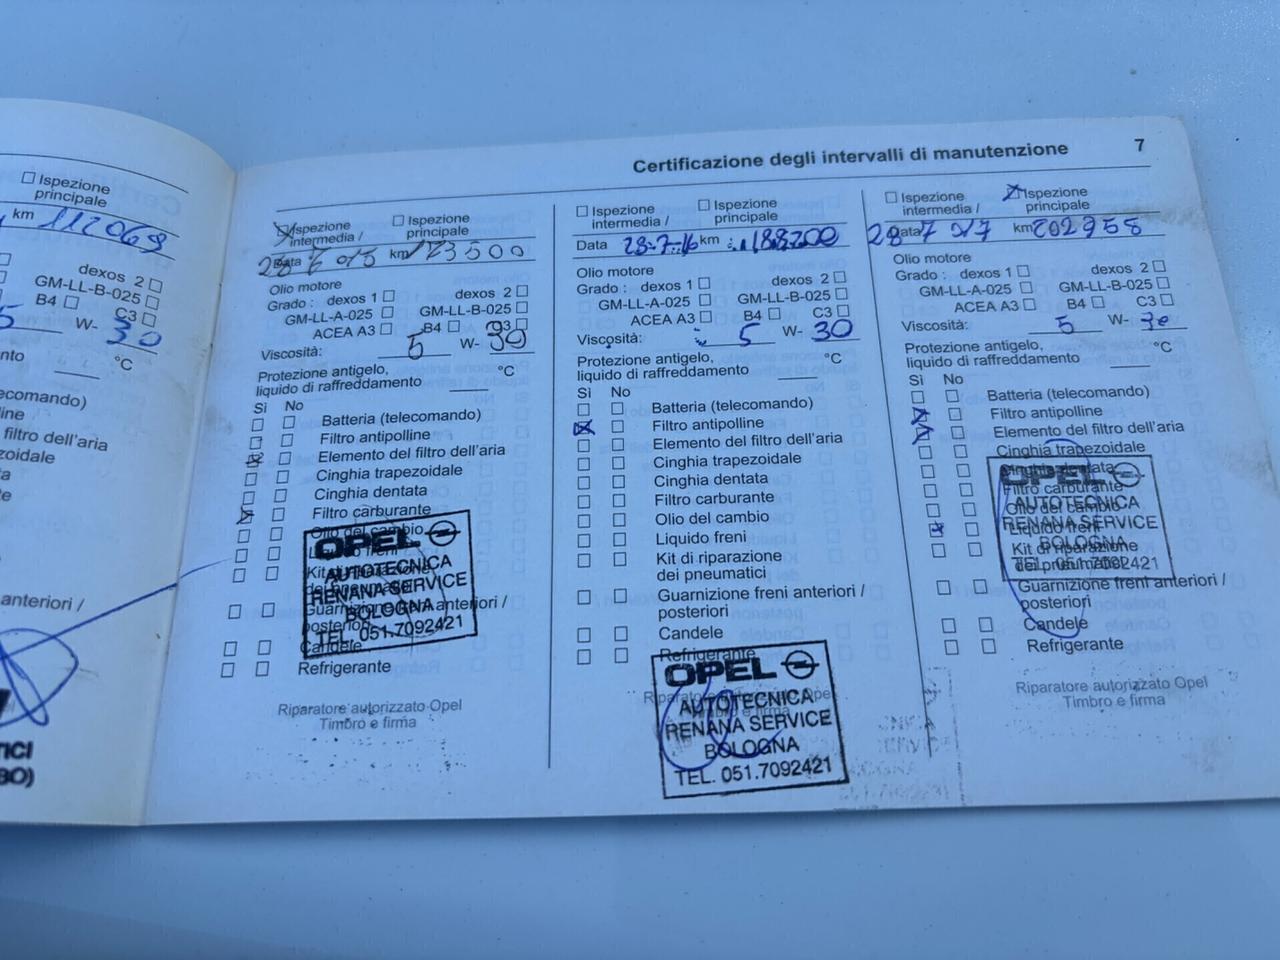 Certificazione degli intervalli di manutenzione 7
Ispezione principale
km 112069
dexos 2
GM-LL-B-025
B4 C3
W- 30
°C
filtro dell'aria
anteriori /
Ispezione intermedia / Ispezione principale
Data km
Olio motore
Grado: dexos 1 dexos 2
GM-LL-A-025 GM-LL-B-025
ACEA A3 B4 C3
Viscosità: 5 W- 30
Protezione antigelo,
liquido di raffreddamento °C
Sì No
Batteria (telecomando)
Filtro antipolline
Elemento del filtro dell'aria
Cinghia trapezoidale
Cinghia dentata
Filtro carburante
Olio del cambio
Liquido freni
Kit di riparazione
dei pneumatici
Guarnizione freni anteriori /
posteriori
Candele
Refrigerante
OPEL
AUTOTECNICA
RENANA SERVICE
BOLOGNA
TEL. 051.7092421
Riparatore autorizzato Opel
Timbro e firma
Ispezione intermedia / Ispezione principale
Data 28-7-16 km 188200
Olio motore
Grado: dexos 1 dexos 2
GM-LL-A-025 GM-LL-B-025
ACEA A3 B4 C3
Viscosità: 5 W- 30
Protezione antigelo,
liquido di raffreddamento °C
Sì No
Batteria (telecomando)
Filtro antipolline
Elemento del filtro dell'aria
Cinghia trapezoidale
Cinghia dentata
Filtro carburante
Olio del cambio
Liquido freni
Kit di riparazione
dei pneumatici
Guarnizione freni anteriori /
posteriori
Candele
Refrigerante
OPEL
AUTOTECNICA
RENANA SERVICE
BOLOGNA
TEL. 051.7092421
Ispezione intermedia / Ispezione principale
Data 28 7 017 km 202958
Olio motore
Grado: dexos 1 dexos 2
GM-LL-A-025 GM-LL-B-025
ACEA A3 B4 C3
Viscosità: 5 W- 30
Protezione antigelo,
liquido di raffreddamento °C
Sì No
Batteria (telecomando)
Filtro antipolline
Elemento del filtro dell'aria
Cinghia trapezoidale
Cinghia dentata
Filtro carburante
Olio del cambio
Liquido freni
Kit di riparazione
dei pneumatici
Guarnizione freni anteriori /
posteriori
Candele
Refrigerante
OPEL
AUTOTECNICA
RENANA SERVICE
BOLOGNA
TEL. 051.7092421
Riparatore autorizzato Opel
Timbro e firma